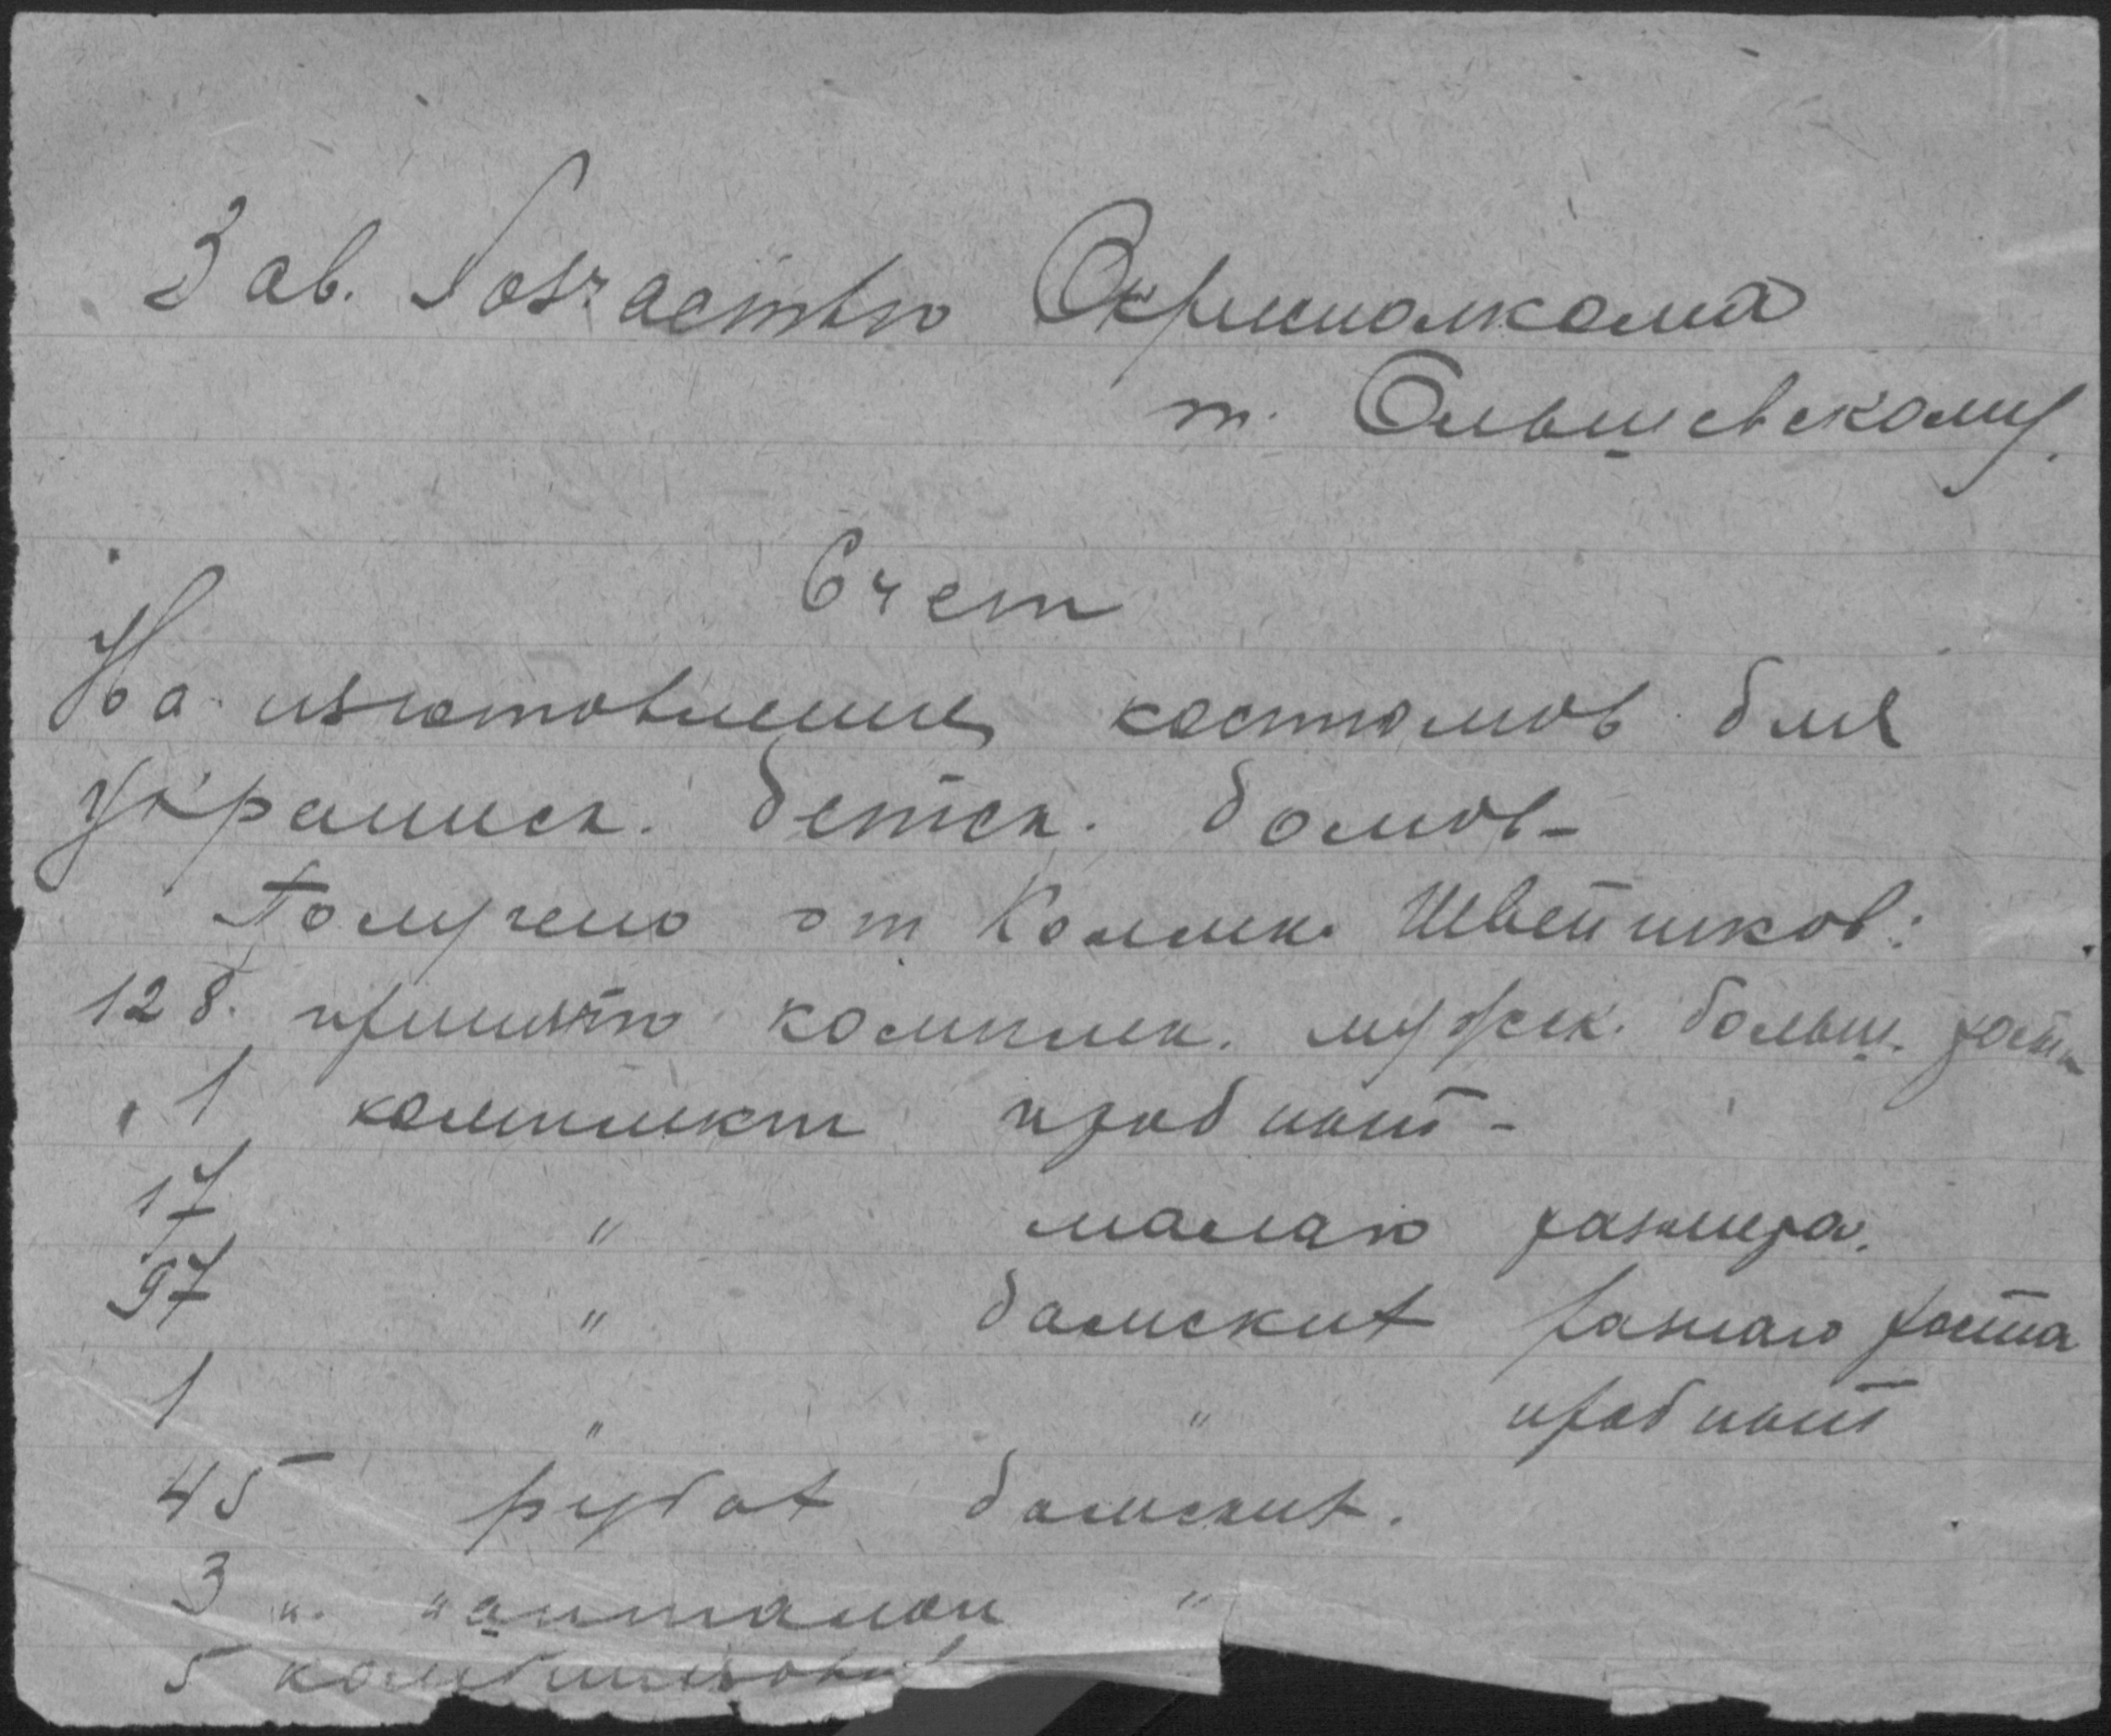 Зав. Хозчастью Окрисполкома
т. Ольшевскому.
Счет
На изготовление костюмов для
Украинск. детск. домов-
Получено от Коллек. Швейников:
128. принято комплек. мужск. больш. роста
1 комплект пробный -
17 " малаго размера.
97 " дамских разнаго роста
1 " " пробный
45 рубах дамских.
3 п. панталон "
5